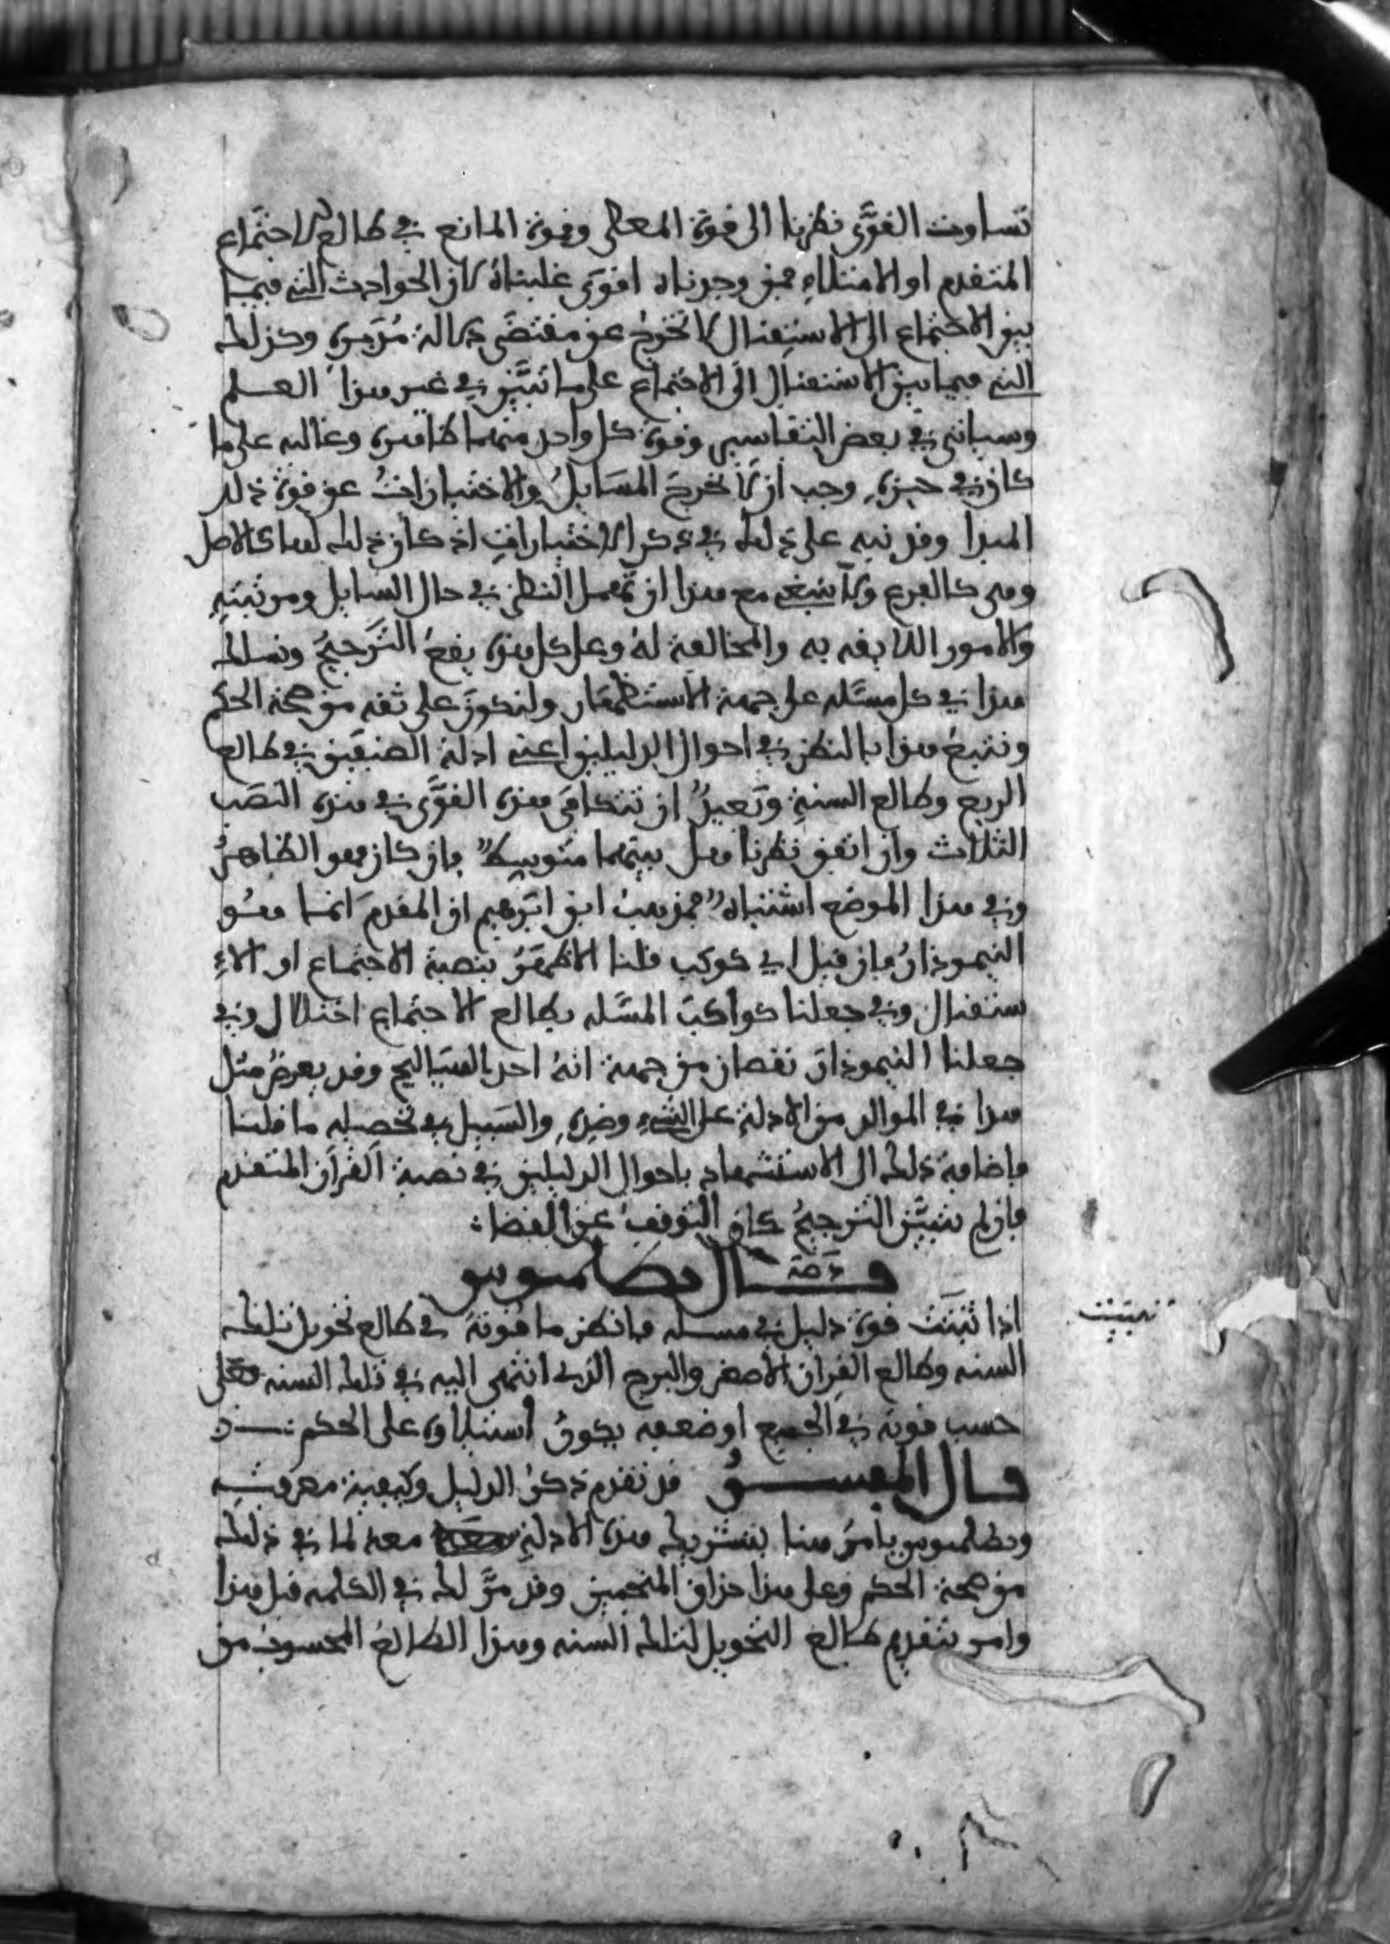 تساوت القوى نظرنا الى قوة المعطى وقوة المانع في طالع الاجتماع
المتقدم او الامتلاء فمن وجدناه اقوى غلبناه لان الحوادث التي فيما
بين الاجتماع الى الاستقبال لا تخرج عن مقتضى دلالة مدبره وكذلك
التي فيما بين الاستقبال الى الاجتماع على ما تبين في غير هذا العلم
وسياتي في بعض التفاسير وقوة كل واحد منهما ظاهره وغالبه على ما
كان في حيزه وجب ان لا تخرج المسايل والاختيارات عن قوة ذلك
المبدا وقد نبه على ذلك في ذكر الاختيارات اذ كان ذلك لها كالاصل
وهي كالفرع ولا ينبغي مع هذا ان تهمل النظر في حال السايل ومرتبته
والامور اللايقه به والمخالفة له وعلى كل هذه يقع الترجيح ونسلك
هذا في كل مسئله على جهة الاستظهار ولتكون على ثقه من صحة الحكم
ونتبع هذا بالنظر في احوال الدليلين اعني ادلة الصنفين في طالع
الربع وطالع السنة وبعيد ان تتكافى هذه القوى في هذه النصب
الثلاث وان اتفق نظرنا هل بينهما متوسط فان كان فهو الظاهر
وفي هذا الموضع اشتباه فمذهب ابن ابرهيم ان المقدم انما هو
النيموذار فان قيل اي كوكب قلنا الاظهر بنصبة الاجتماع او الا
ستقبال وفي جعلنا كواكب المسئله بطالع الاجتماع اختلال وفي
جعلنا النيموذار نقصان من جهة انه احد الهياليج وقد يعرض مثل
هذا في الموالد من الادلة على الشيء وضده والسبيل في تحصيله ما قلنا
باضافة ذلك الى الاستشهاد باحوال الدليلين في نصبة القران المتقدم
فان لم يتبين الترجيح كان التوقف عن القضا
قال بطلميوس
اذا ثبتت قوة دليل في مسله فانظر ما قوته في طالع تحويل تلك
تثبتت
السنه وطالع القران الاصغر والبرج الذي انتهى اليه في تلك السنه فعلى
حسب قوته في الجميع او ضعفه يكون استيلاوه على الحكم
قال المفسر قد تقدم ذكر الدليل وكيفية معرفته
وبطلميوس يامر هنا بتشريك هذه الادلة معه لما في ذلك
من صحة الحكم وعلى هذا حذاق المنجمين وقد مر لك في الكلمه قبل هذا
وامر بتقديم طالع التحويل لتلك السنه وهذا الطالع المحسوب من